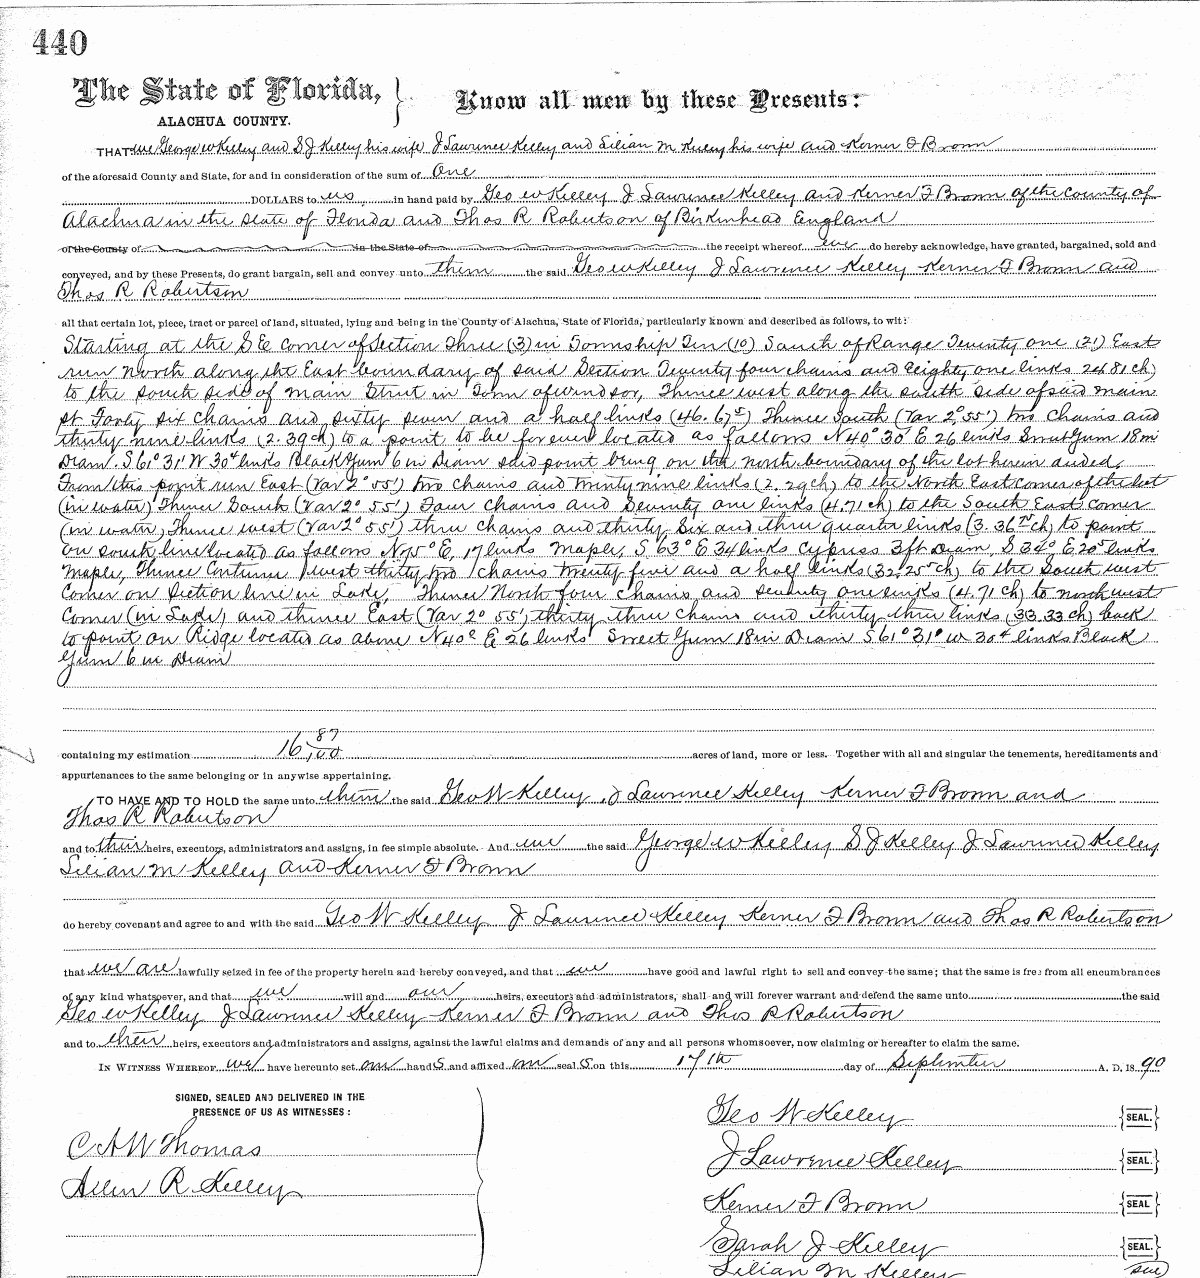 440
The State of Florida,
ALACHUA COUNTY.
Know all men by these Presents:
THAT we George W Kelley and S J Kelley his wife J Lawrence Kelley and Lilian M Kelley his wife and Kerner F Bronn
of the aforesaid County and State, for and in consideration of the sum of One
DOLLARS to us in hand paid by Geo W Kelley J Lawrence Kelley and Kerner F Bronn of the County of
Alachua in the State of Florida and Thos R Robertson of Birkinhead England
of the County of in the State of the receipt whereof we do hereby acknowledge, have granted, bargained, sold and
conveyed, and by these Presents, do grant bargain, sell and convey unto them the said Geo W Kelley J Lawrence Kelley Kerner F Bronn and
Thos R Robertson
all that certain lot, piece, tract or parcel of land, situated, lying and being in the County of Alachua, State of Florida, particularly known and described as follows, to wit:
Starting at the SE corner of Section Three (3) in Township Ten (10) South of Range Twenty one (21) East
run North along the East boundary of said Section Twenty four chains and eighty one links 24.81 ch)
to the south side of main Street in Town of Windsor, Thence west along the south side of said main
st Forty six chains and sixty seven and a half links (46.67⁵) Thence South (Var 2° 55') two chains and
thirty nine links (2.39 ch) to a point to be forever located as follows N 40° 30' E 26 links Sweet Gum 18 in
Diam. S 61° 31' W 30⁴ links Black Gum 6 in Diam said point being on the north boundary of the lot herein deeded.
From this point run East (Var 2° 55') two chains and twenty nine links (2.29 ch) to the North East corner of the lot
(in water) Thence South (Var 2° 55') Four chains and Seventy one links (4.71 ch) to the South East corner
(in water) Thence west (Var 2° 55') three chains and thirty Six and three quarter links (3.36 ch) to point
on south line located as follows N 75° E, 17 links Maple, S 63° E 34 links Cypress 3 ft Diam, S 34° E 20⁵ links
Maple, Thence Continue west thirty two chains twenty five and a half links (32.25 ch) to the South west
Corner on Section line in Lake, Thence North four chains and seventy one links (4.71 ch) to north west
Corner (in Lake) and thence East (Var 2° 55') thirty three chains and thirty three links (33.33 ch) back
to point on Ridge located as above N 40° E 26 links Sweet Gum 18 in Diam S 61° 31° W 30⁴ links Black
Gum 6 in Diam
containing my estimation 16 87/100 acres of land, more or less. Together with all and singular the tenements, hereditaments and
appurtenances to the same belonging or in anywise appertaining.
TO HAVE AND TO HOLD the same unto them the said Geo W Kelley J Lawrence Kelley Kerner F Bronn and
Thos R Robertson
and to their heirs, executors, administrators and assigns, in fee simple absolute. And we the said George W Kelley S J Kelley J Lawrence Kelley
Lilian M Kelley and Kerner F Bronn
do hereby covenant and agree to and with the said Geo W Kelley J Lawrence Kelley Kerner F Bronn and Thos R Robertson
that we are lawfully seized in fee of the property herein and hereby conveyed, and that we have good and lawful right to sell and convey the same; that the same is free from all encumbrances
of any kind whatsoever, and that we will and our heirs, executors and administrators, shall and will forever warrant and defend the same unto the said
Geo W Kelley J Lawrence Kelley Kerner F Bronn and Thos R Robertson
and to their heirs, executors and administrators and assigns, against the lawful claims and demands of any and all persons whomsoever, now claiming or hereafter to claim the same.
IN WITNESS WHEREOF we have hereunto set our hands and affixed our seals on this 17th day of September A. D. 1890
SIGNED, SEALED AND DELIVERED IN THE
PRESENCE OF US AS WITNESSES:
C A W Thomas
Allen R Kelley
Geo W Kelley SEAL.
J Lawrence Kelley SEAL.
Kerner F Bronn SEAL
Sarah J Kelley SEAL.
Lilian M Kelley